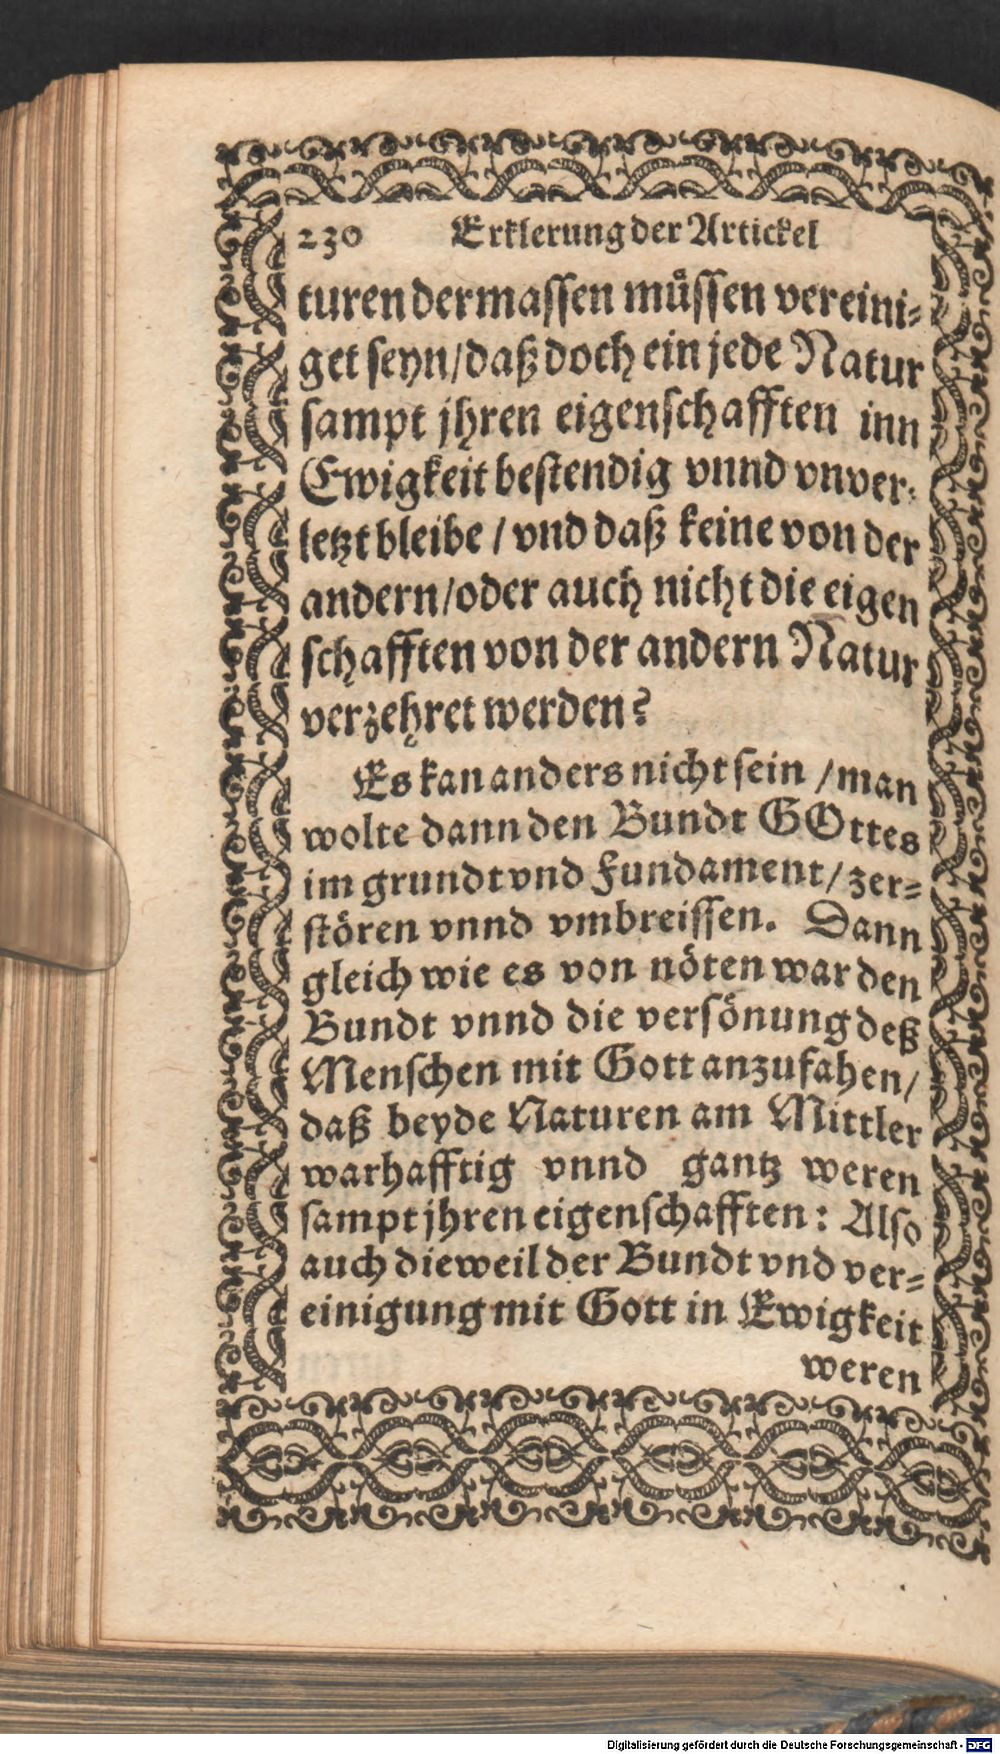 230 Erklerung der Artickel
turen dermassen müssen vereini-
get seyn/daß doch ein jede Natur
sampt jhren eigenschafften inn
Ewigkeit bestendig vnnd vnver-
letzt bleibe / vnd daß keine von der
andern/oder auch nicht die eigen
schafften von der andern Natur
verzehret werden?
Es kan anders nicht sein /man
wolte dann den Bundt GOttes
im grundt vnd Fundament/zer-
stören vnnd vmbreissen. Dann
gleich wie es von nöten war den
Bundt vnnd die versönung deß
Menschen mit Gott anzufahen/
daß beyde Naturen am Mittler
warhafftig vnnd gantz weren
sampt jhren eigenschafften: Also
auch dieweil der Bundt vnd ver-
einigung mit Gott in Ewigkeit
weren
Digitalisierung gefördert durch die Deutsche Forschungsgemeinschaft - DFG